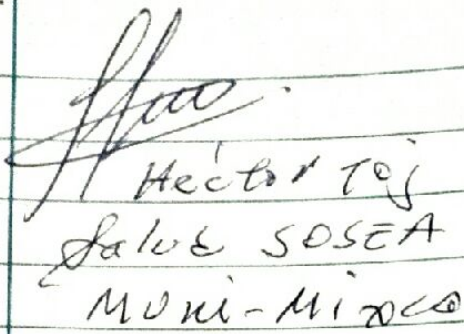 Héctor Toj
Salud SOSEA
Muni-Mixco